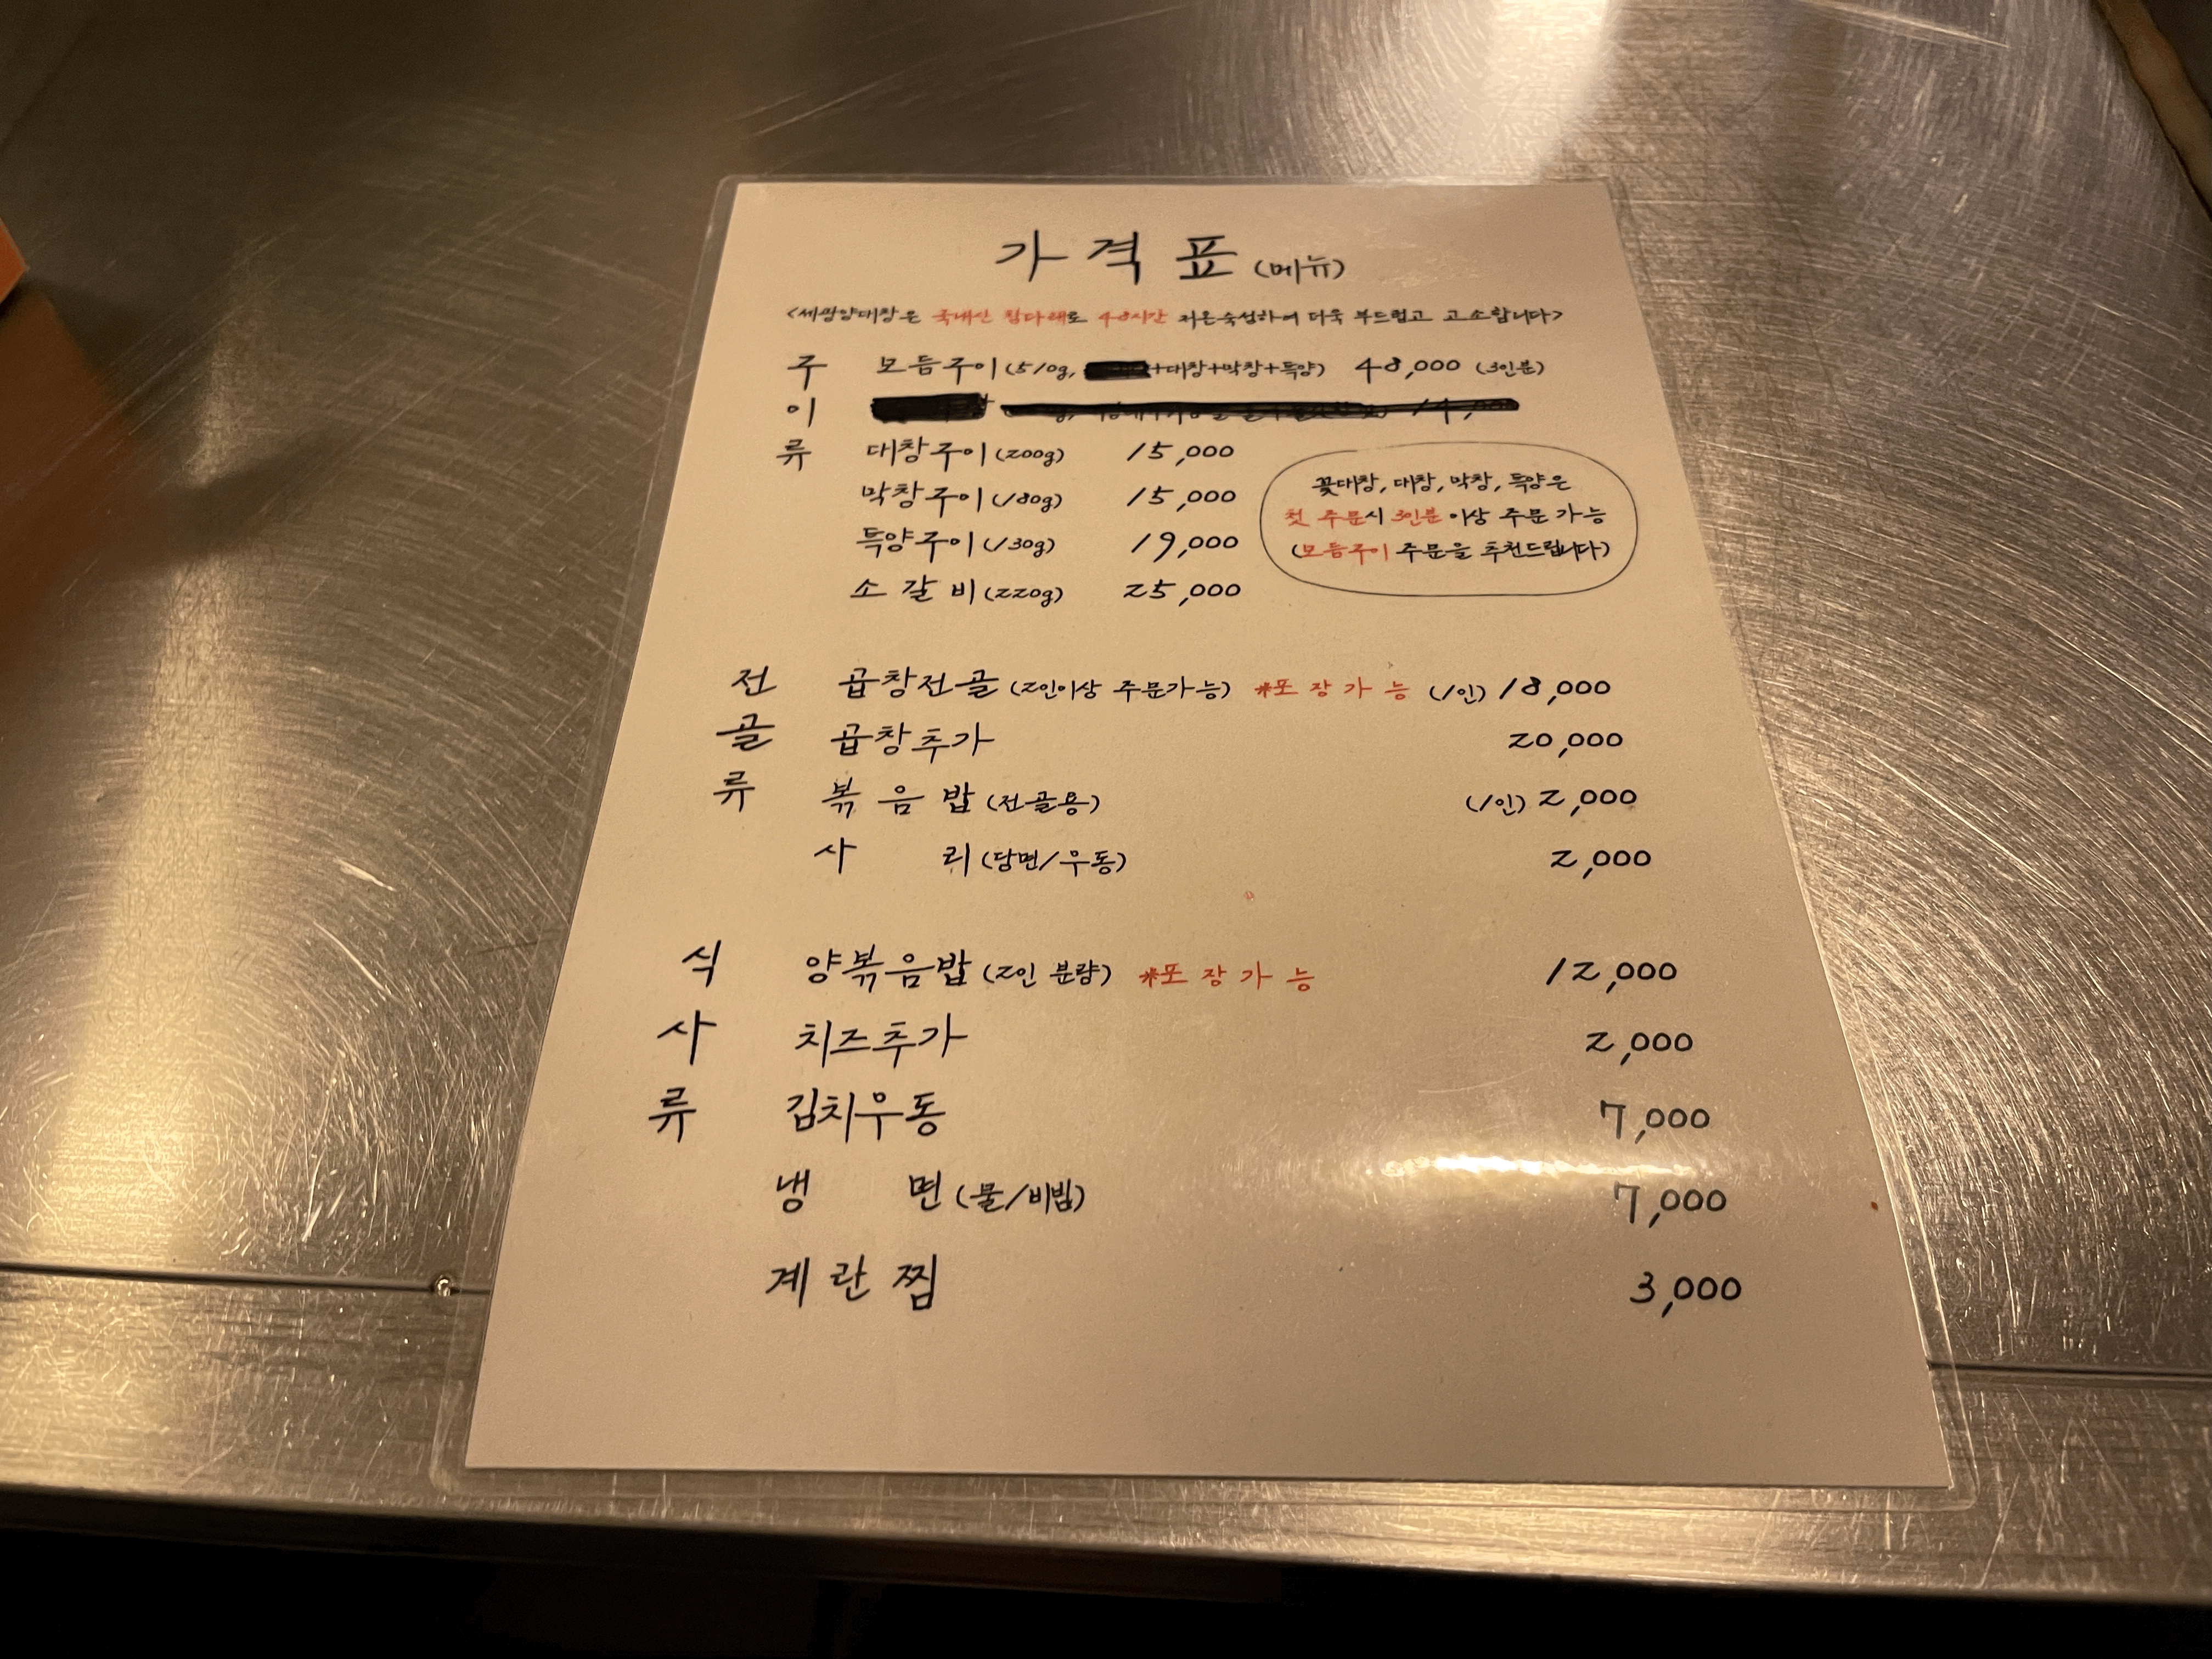 가격표 (메뉴)
<세광양대창은 국내산 참다래로 48시간 저온숙성하여 더욱 부드럽고 고소합니다>
구이류
모듬구이 (510g, +대창+막창+특양) 48,000 (3인분)
대창구이 (200g) 15,000
막창구이 (180g) 15,000
특양구이 (130g) 19,000
소갈비 (220g) 25,000
꽃대창, 대창, 막창, 특양은
첫 주문시 3인분 이상 주문 가능
(모듬구이 주문을 추천드립니다)
전골류
곱창전골 (2인이상 주문가능) *포장가능 (1인) 18,000
곱창추가 20,000
볶음밥 (전골용) (1인) 2,000
사리 (당면/우동) 2,000
식사류
양볶음밥 (2인 분량) *포장가능 12,000
치즈추가 2,000
김치우동 7,000
냉면 (물/비빔) 7,000
계란찜 3,000